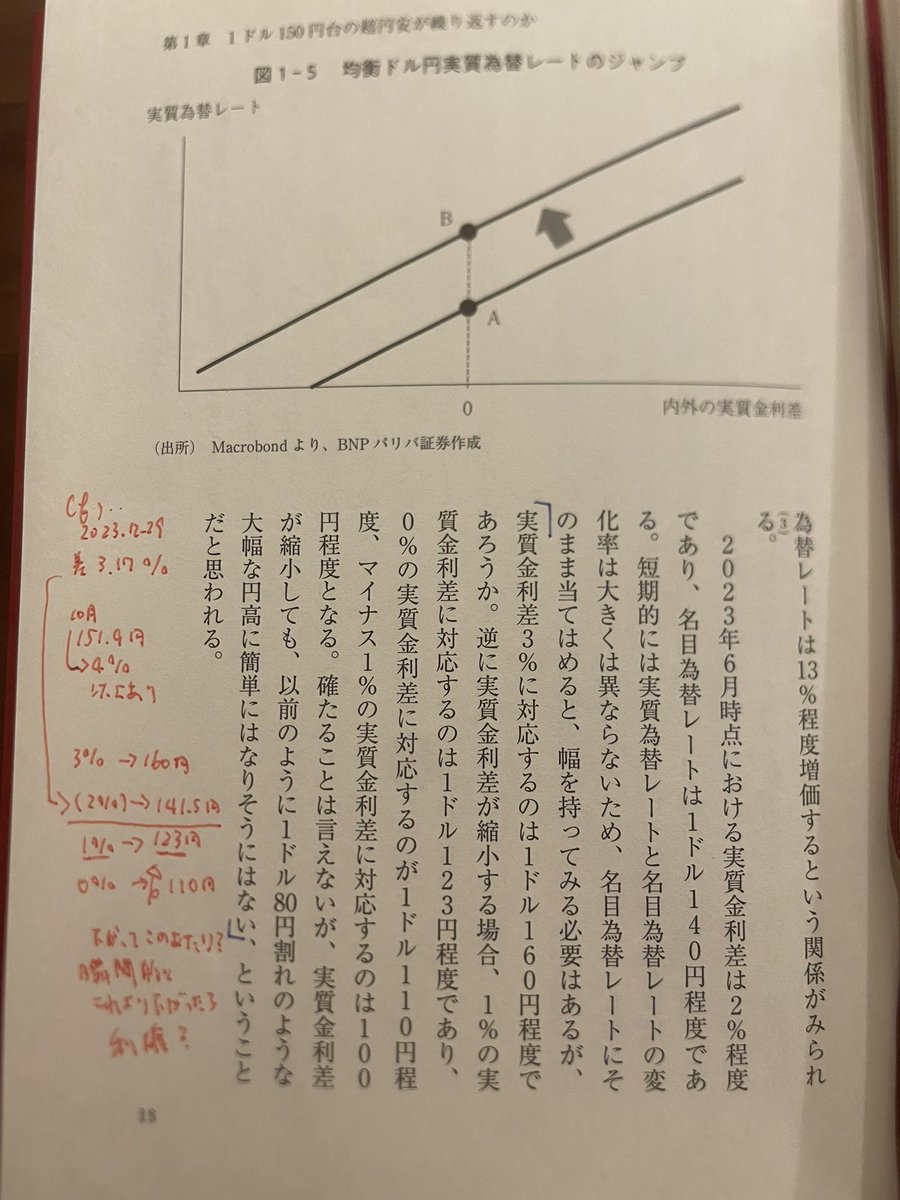 第1章 1ドル150円台の超円安が繰り返すのか
図1-5 均衡ドル円実質為替レートのジャンプ
実質為替レート
B
A
0
内外の実質金利差
(出所) Macrobondより、BNPパリバ証券作成
為替レートは13%程度増価するという関係がみられ
る。(3)
2023年6月時点における実質金利差は2%程度
であり、名目為替レートは1ドル140円程度であ
る。短期的には実質為替レートと名目為替レートの変
化率は大きくは異ならないため、名目為替レートにそ
のまま当てはめると、幅を持ってみる必要はあるが、
実質金利差3%に対応するのは1ドル160円程度で
あろうか。逆に実質金利差が縮小する場合、1%の実
質金利差に対応するのは1ドル123円程度であり、
0%の実質金利差に対応するのが1ドル110円程
度、マイナス1%の実質金利差に対応するのは100
円程度となる。確たることは言えないが、実質金利差
が縮小しても、以前のように1ドル80円割れのような
大幅な円高に簡単にはなりそうにはない、ということ
だと思われる。
2023.12-29
差 3.17%
10月
151.9円
→4%
3%→160円
→(2%)→141.5円
1%→123円
0%→110円
下がってこのあたり?
瞬間的に
これより下がったら
18